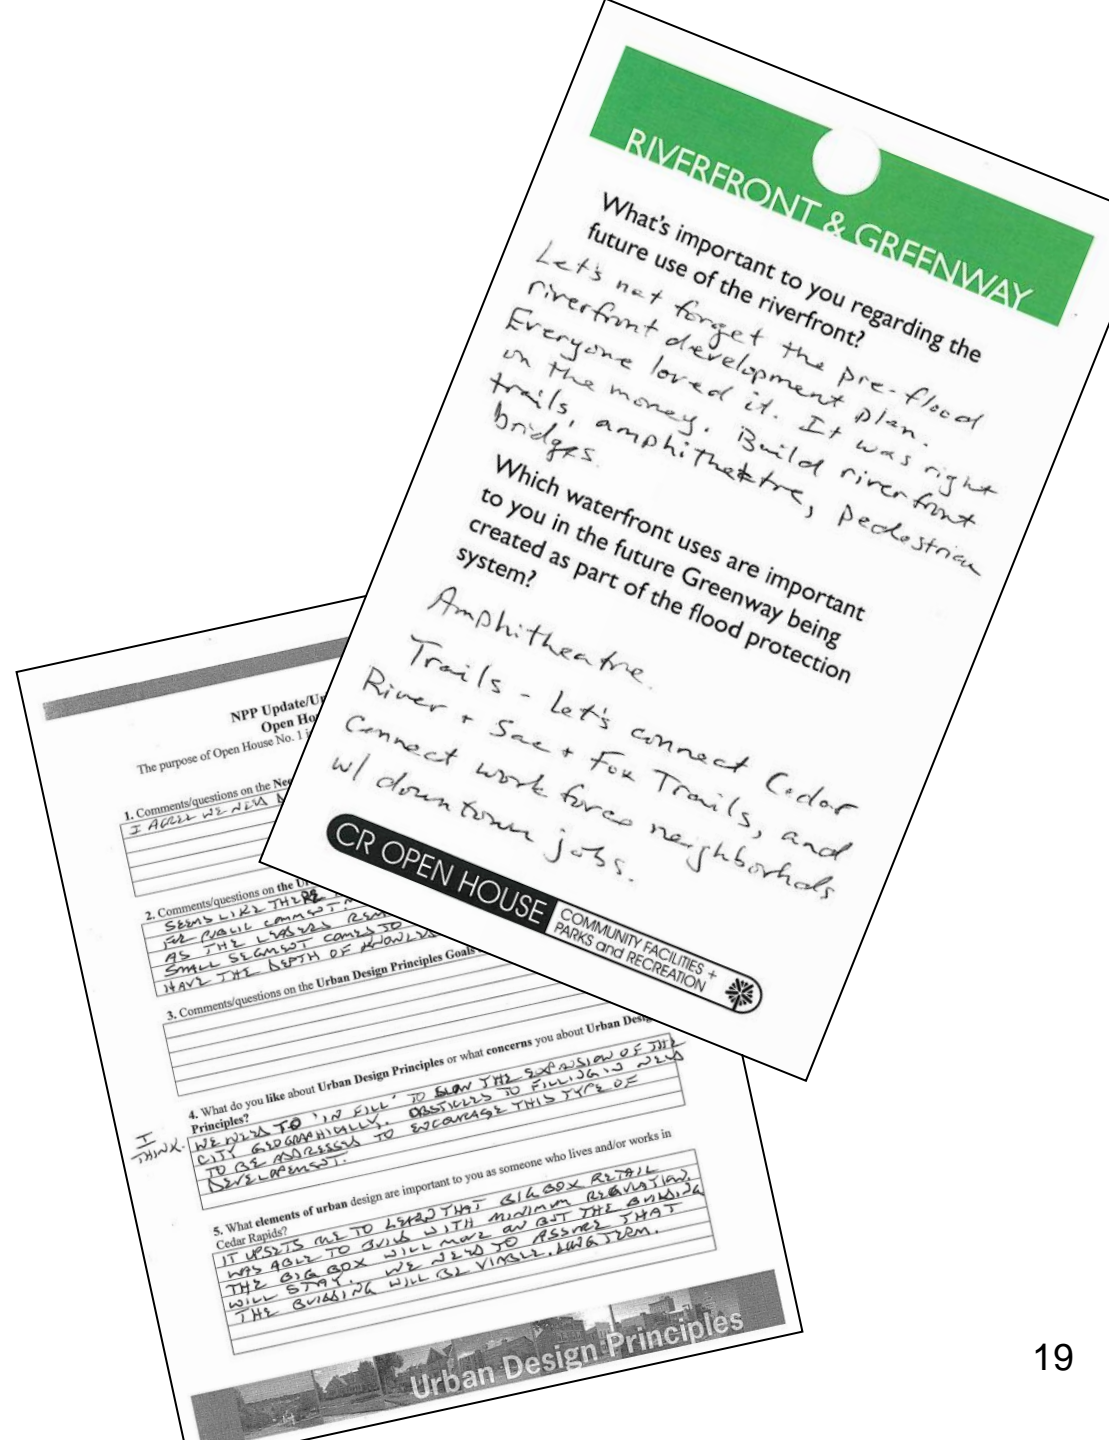 RIVERFRONT & GREENWAY
What's important to you regarding the
future use of the riverfront?
Let's not forget the pre-flood
riverfront development plan.
Everyone loved it. It was right
on the money. Build riverfront
trails, amphitheatre, pedestrian
bridges.
Which waterfront uses are important
to you in the future Greenway being
created as part of the flood protection
system?
Amphitheatre.
Trails - Let's connect Cedar
River + Sac + Fox Trails, and
connect work force neighborhods
w/ downtown jobs.
CR OPEN HOUSE
COMMUNITY FACILITIES +
PARKS and RECREATION
NPP Update/
Open
The purpose of Open House No. 1
1. Comments/questions on the
I AGREE WE NEED
2. Comments/questions on the
SEEMS LIKE THERE
FOR PUBLIC COMMENT.
AS THE LEADERS
SMALL SEGMENT COMES TO
HAVE THE DEPTH OF
3. Comments/questions on the Urban Design Principles Goals
4. What do you like about Urban Design Principles or what concerns you about Urban
Principles?
I
THINK.
WE NEED TO 'IN FILL' TO SLOW THE EXPANSION OF THE
CITY GEOGRAPHICALLY. OBSTICLES TO FILLING IN NEED
TO BE ADDRESSED TO ENCOURAGE THIS TYPE OF
DEVELOPEMENT.
5. What elements of urban design are important to you as someone who lives and/or works in
Cedar Rapids?
IT UPSETS ME TO LEARN THAT BIG BOX RETAIL
WAS ABLE TO BUILD WITH MINIMUM REGULATION.
THE BIG BOX WILL MOVE ON BUT THE BUILDING
WILL STAY. WE NEED TO ASSURE THAT
THE BUILDING WILL BE VIABLE. LONG TERM.
Urban Design Principles
19